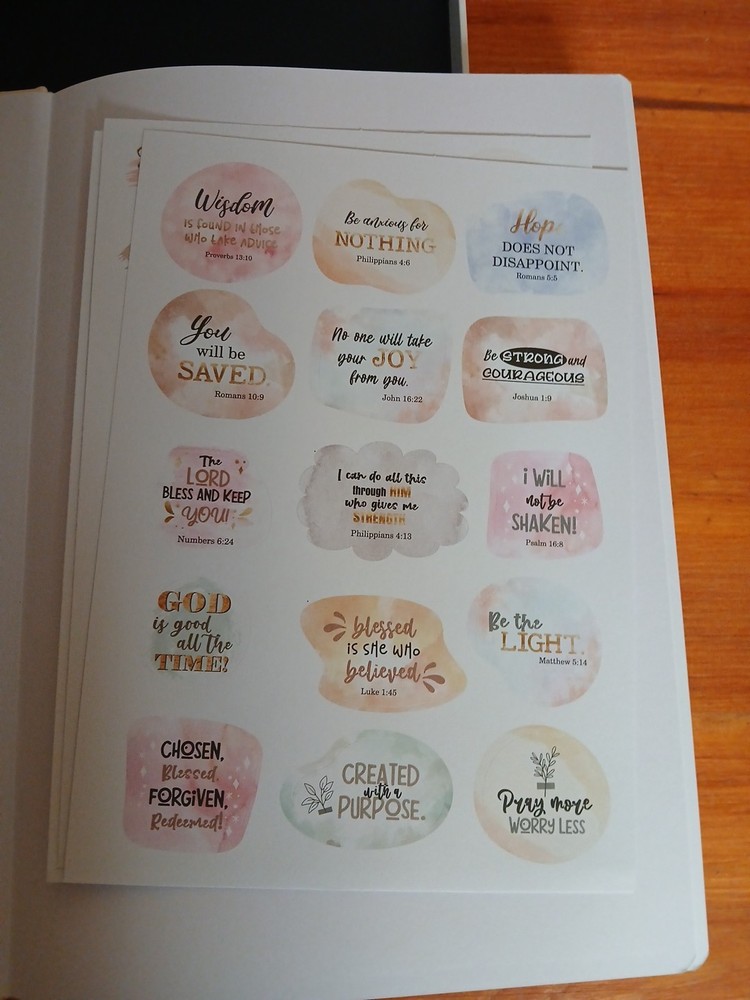 Wisdom
IS FOUND IN those
who take advice
Proverbs 13:10
Be anxious for
NOTHING
Philippians 4:6
Hope
DOES NOT
DISAPPOINT.
Romans 5:5
You
will be
SAVED.
Romans 10:9
No one will take
your JOY
from you.
John 16:22
Be STRONG and
COURAGEOUS
Joshua 1:9
The
LORD
BLESS AND KEEP
YOU!
Numbers 6:24
I can do all this
through HIM
who gives me
STRENGTH
Philippians 4:13
i WILL
not be
SHAKEN!
Psalm 16:8
GOD
is good
all the
TIME!
blessed
IS SHE WHO
believed
Luke 1:45
Be the
LIGHT.
Matthew 5:14
CHOSEN,
Blessed,
FORGIVEN,
Redeemed!
CREATED
with a
PURPOSE.
Pray more
WORRY LESS